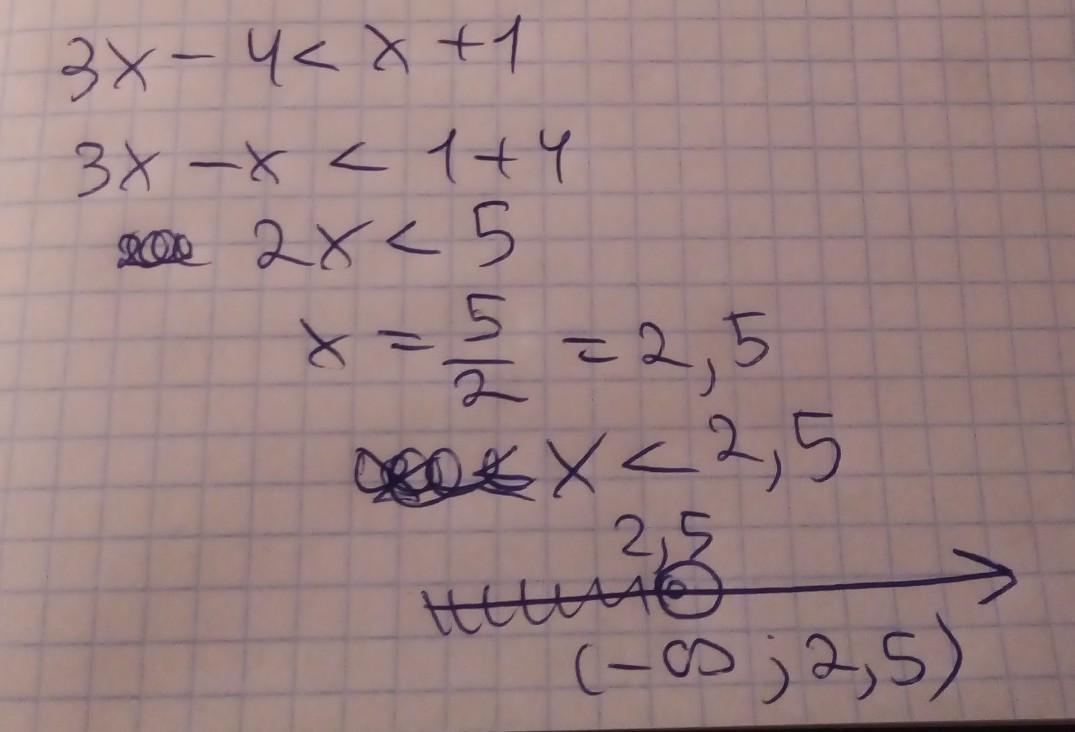 3x - 4 < x + 1
3x - x < 1 + 4
2x < 5
x = 5/2 = 2,5
x < 2,5
2,5
(-∞ ; 2,5)